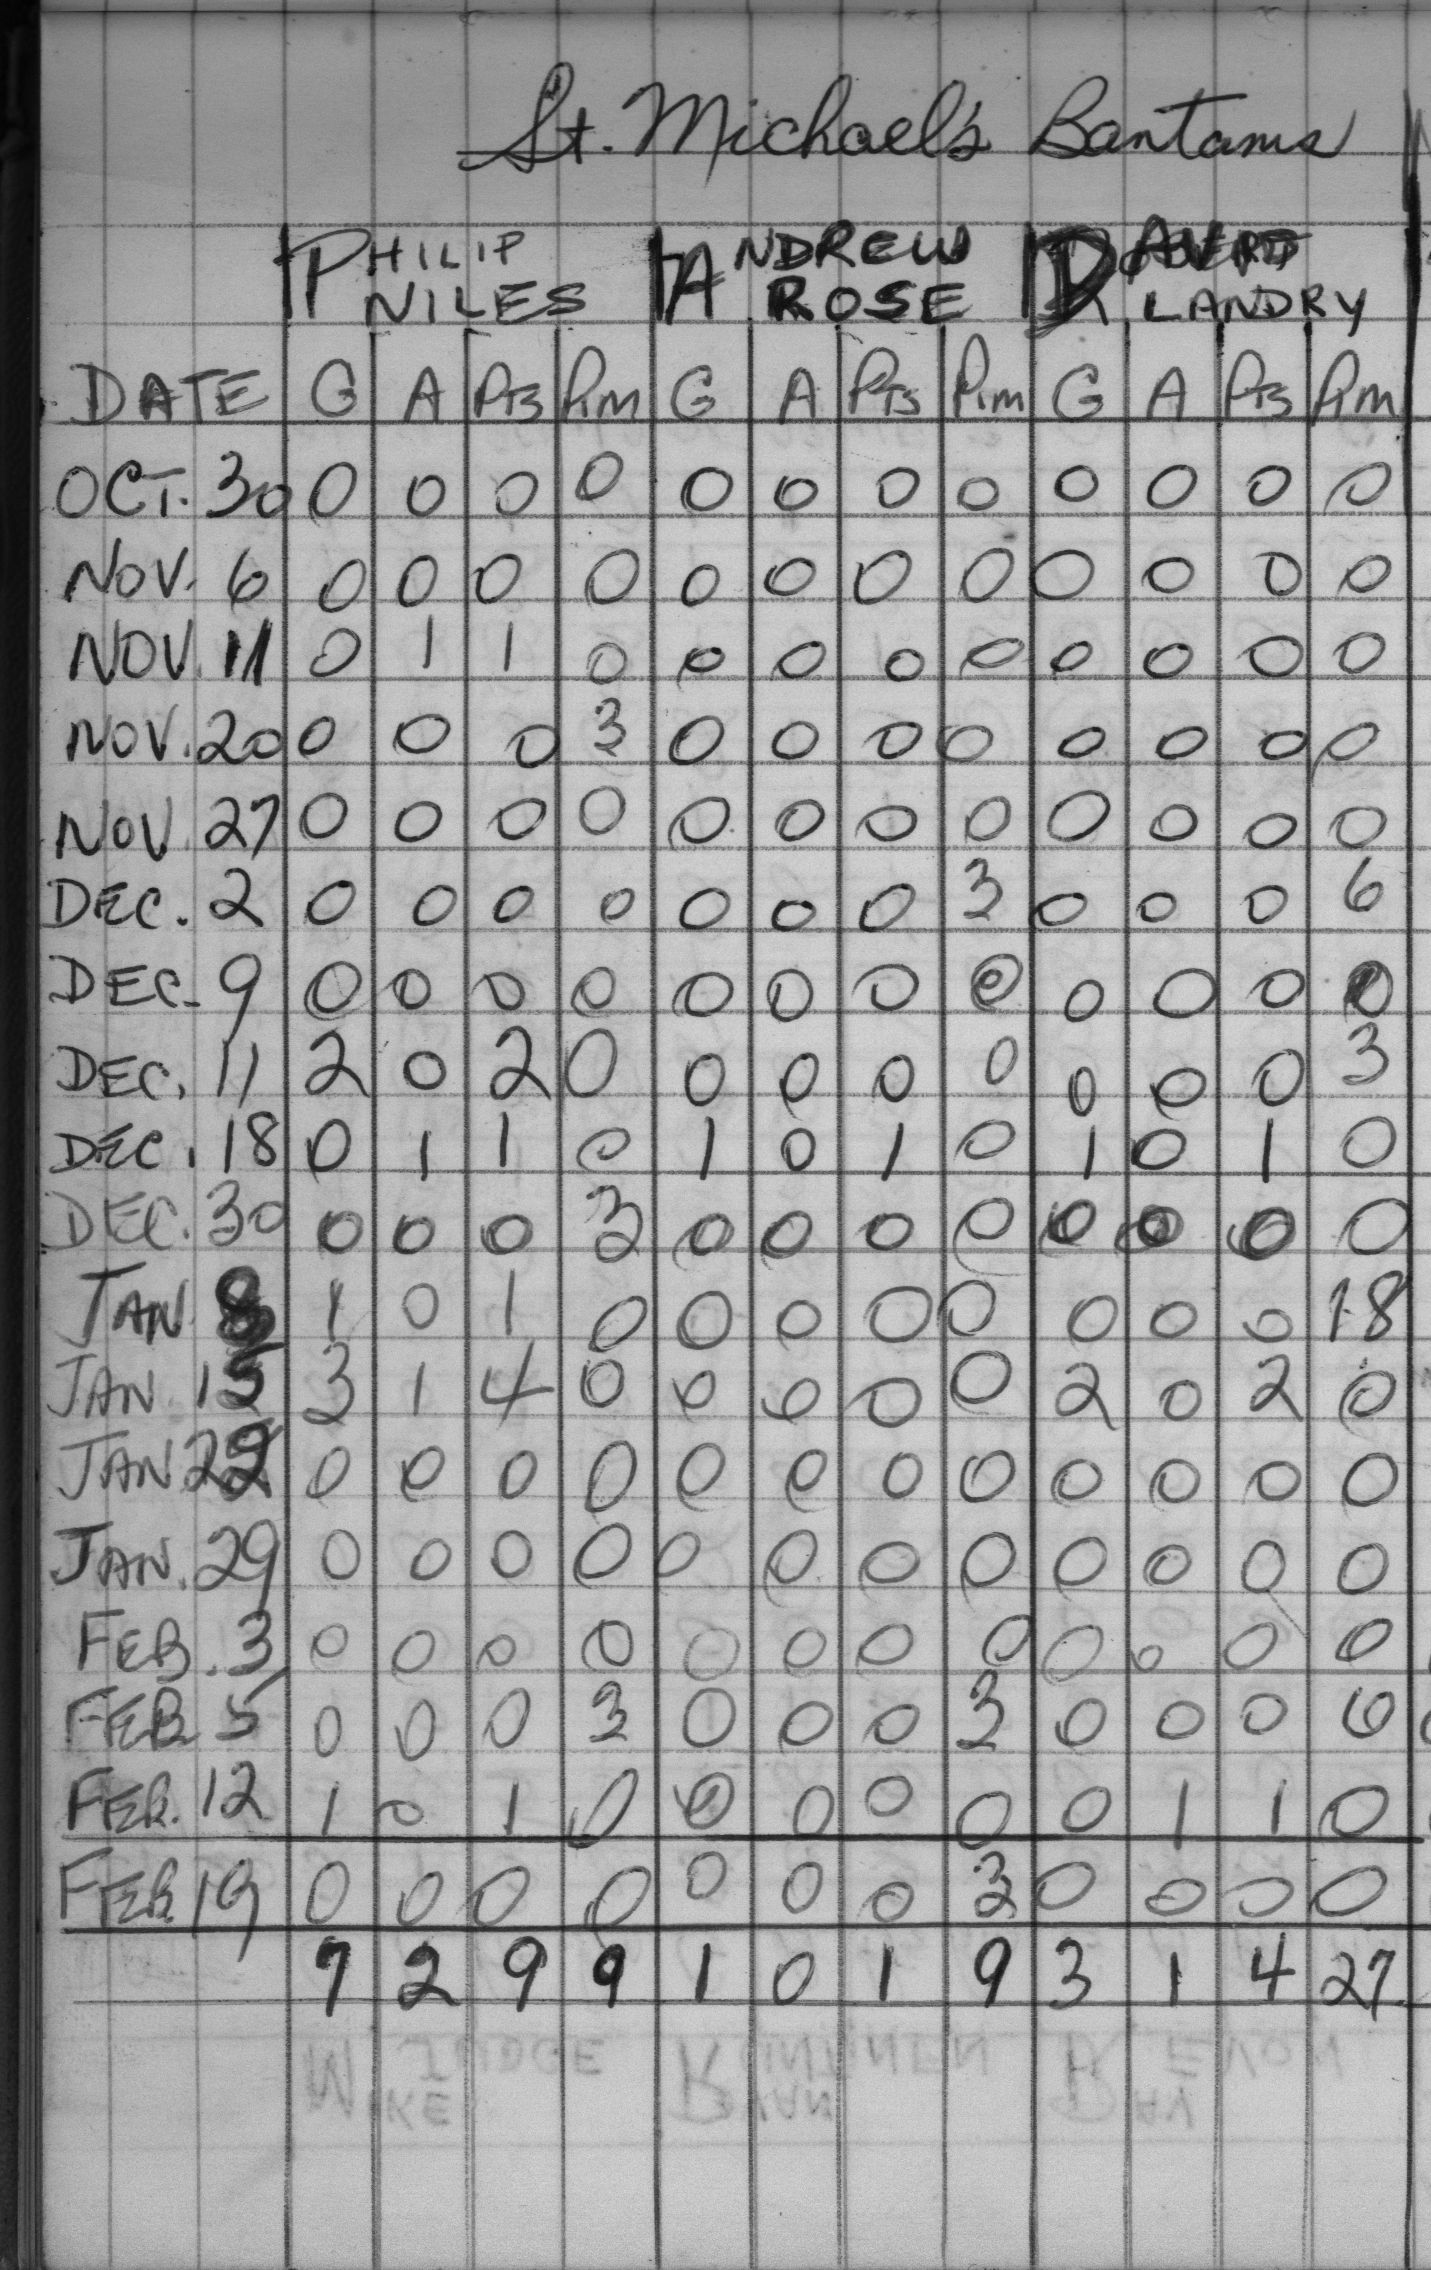 St. Michael's Bantams
PHILIP NILES ANDREW ROSE DAVID LANDRY
DATE G A Pts Pim G A Pts Pim G A Pts Pim
OCT. 30 0 0 0 0 0 0 0 0 0 0 0 0
NOV. 6 0 0 0 0 0 0 0 0 0 0 0 0
NOV. 11 0 1 1 0 0 0 0 0 0 0 0 0
NOV. 20 0 0 0 3 0 0 0 0 0 0 0 0
NOV 27 0 0 0 0 0 0 0 0 0 0 0 0
DEC. 2 0 0 0 0 0 0 0 3 0 0 0 6
DEC. 9 0 0 0 0 0 0 0 0 0 0 0 0
DEC. 11 2 0 2 0 0 0 0 0 0 0 0 3
DEC. 18 0 1 1 0 1 0 1 0 1 0 1 0
DEC. 30 0 0 0 3 0 0 0 0 0 0 0 0
JAN 8 1 0 1 0 0 0 0 0 0 0 0 18
JAN 15 3 1 4 0 0 0 0 0 2 0 2 0
JAN 22 0 0 0 0 0 0 0 0 0 0 0 0
JAN. 29 0 0 0 0 0 0 0 0 0 0 0 0
FEB. 3 0 0 0 0 0 0 0 0 0 0 0 0
FEB 5 0 0 0 3 0 0 0 3 0 0 0 0
FEB. 12 1 0 1 0 0 0 0 0 0 1 1 0
FEB. 19 0 0 0 0 0 0 0 3 0 0 0 0
7 2 9 9 1 0 1 9 3 1 4 27